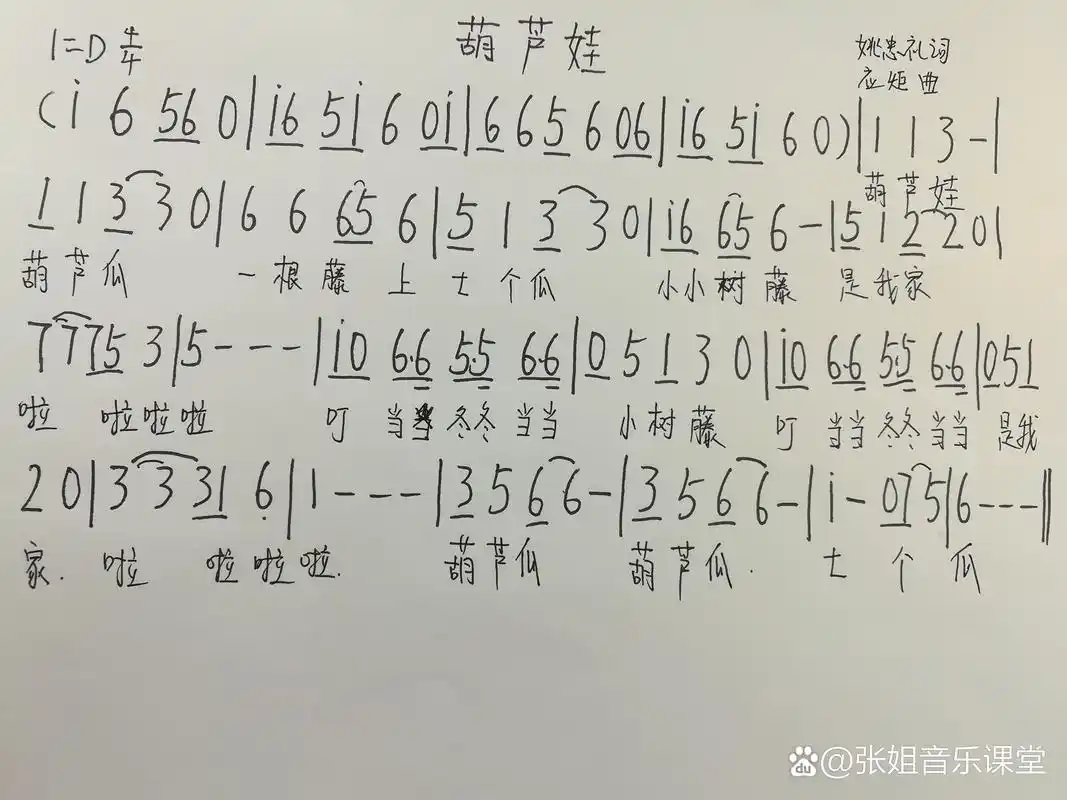 1=D 4/4 葫芦娃 姚忠礼词
应炬曲
(i 6 56 0|i6 5i 6 0i|6 6 5 6 06|i6 5i 6 0)|1 1 3 -|
葫芦娃
1 1 3 3 0|6 6 65 6|5 1 3 3 0|i6 65 6 -|5 1 2 2 0|
葫芦瓜 一根藤 上七个瓜 小小树藤 是我家
7 7 75 3|5 - - -|i0 6·6 5·5 6·6|0 5 1 3 0|i0 6·6 5·5 6·6|0 5 1
啦 啦啦啦 叮 当当 冬冬 当当 小树藤 叮 当当 冬冬 当当 是我
2 0|3 3 31 6̣|1 - - -|3 5 6 6 -|3 5 6 6 -|i - 07 5|6 - - -‖
家. 啦 啦啦啦. 葫芦瓜 葫芦瓜. 七个瓜
@张姐音乐课堂